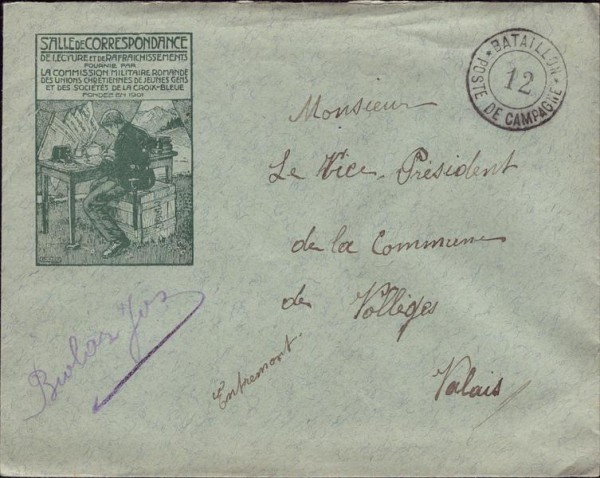 SALLE DE CORRESPONDANCE
DE LECTURE ET DE RAFRAICHISSEMENTS
FOURNIE PAR
LA COMMISSION MILITAIRE ROMANDE
DES UNIONS CHRÉTIENNES DE JEUNES GENS
ET DES SOCIÉTÉS DE LA CROIX-BLEUE
FONDÉE EN 1901
BATAILLON
12
POSTE DE CAMPAGNE
Monsieur
Le Vice-Président
de la Commune
de Vollèges
Entremont.
Valais